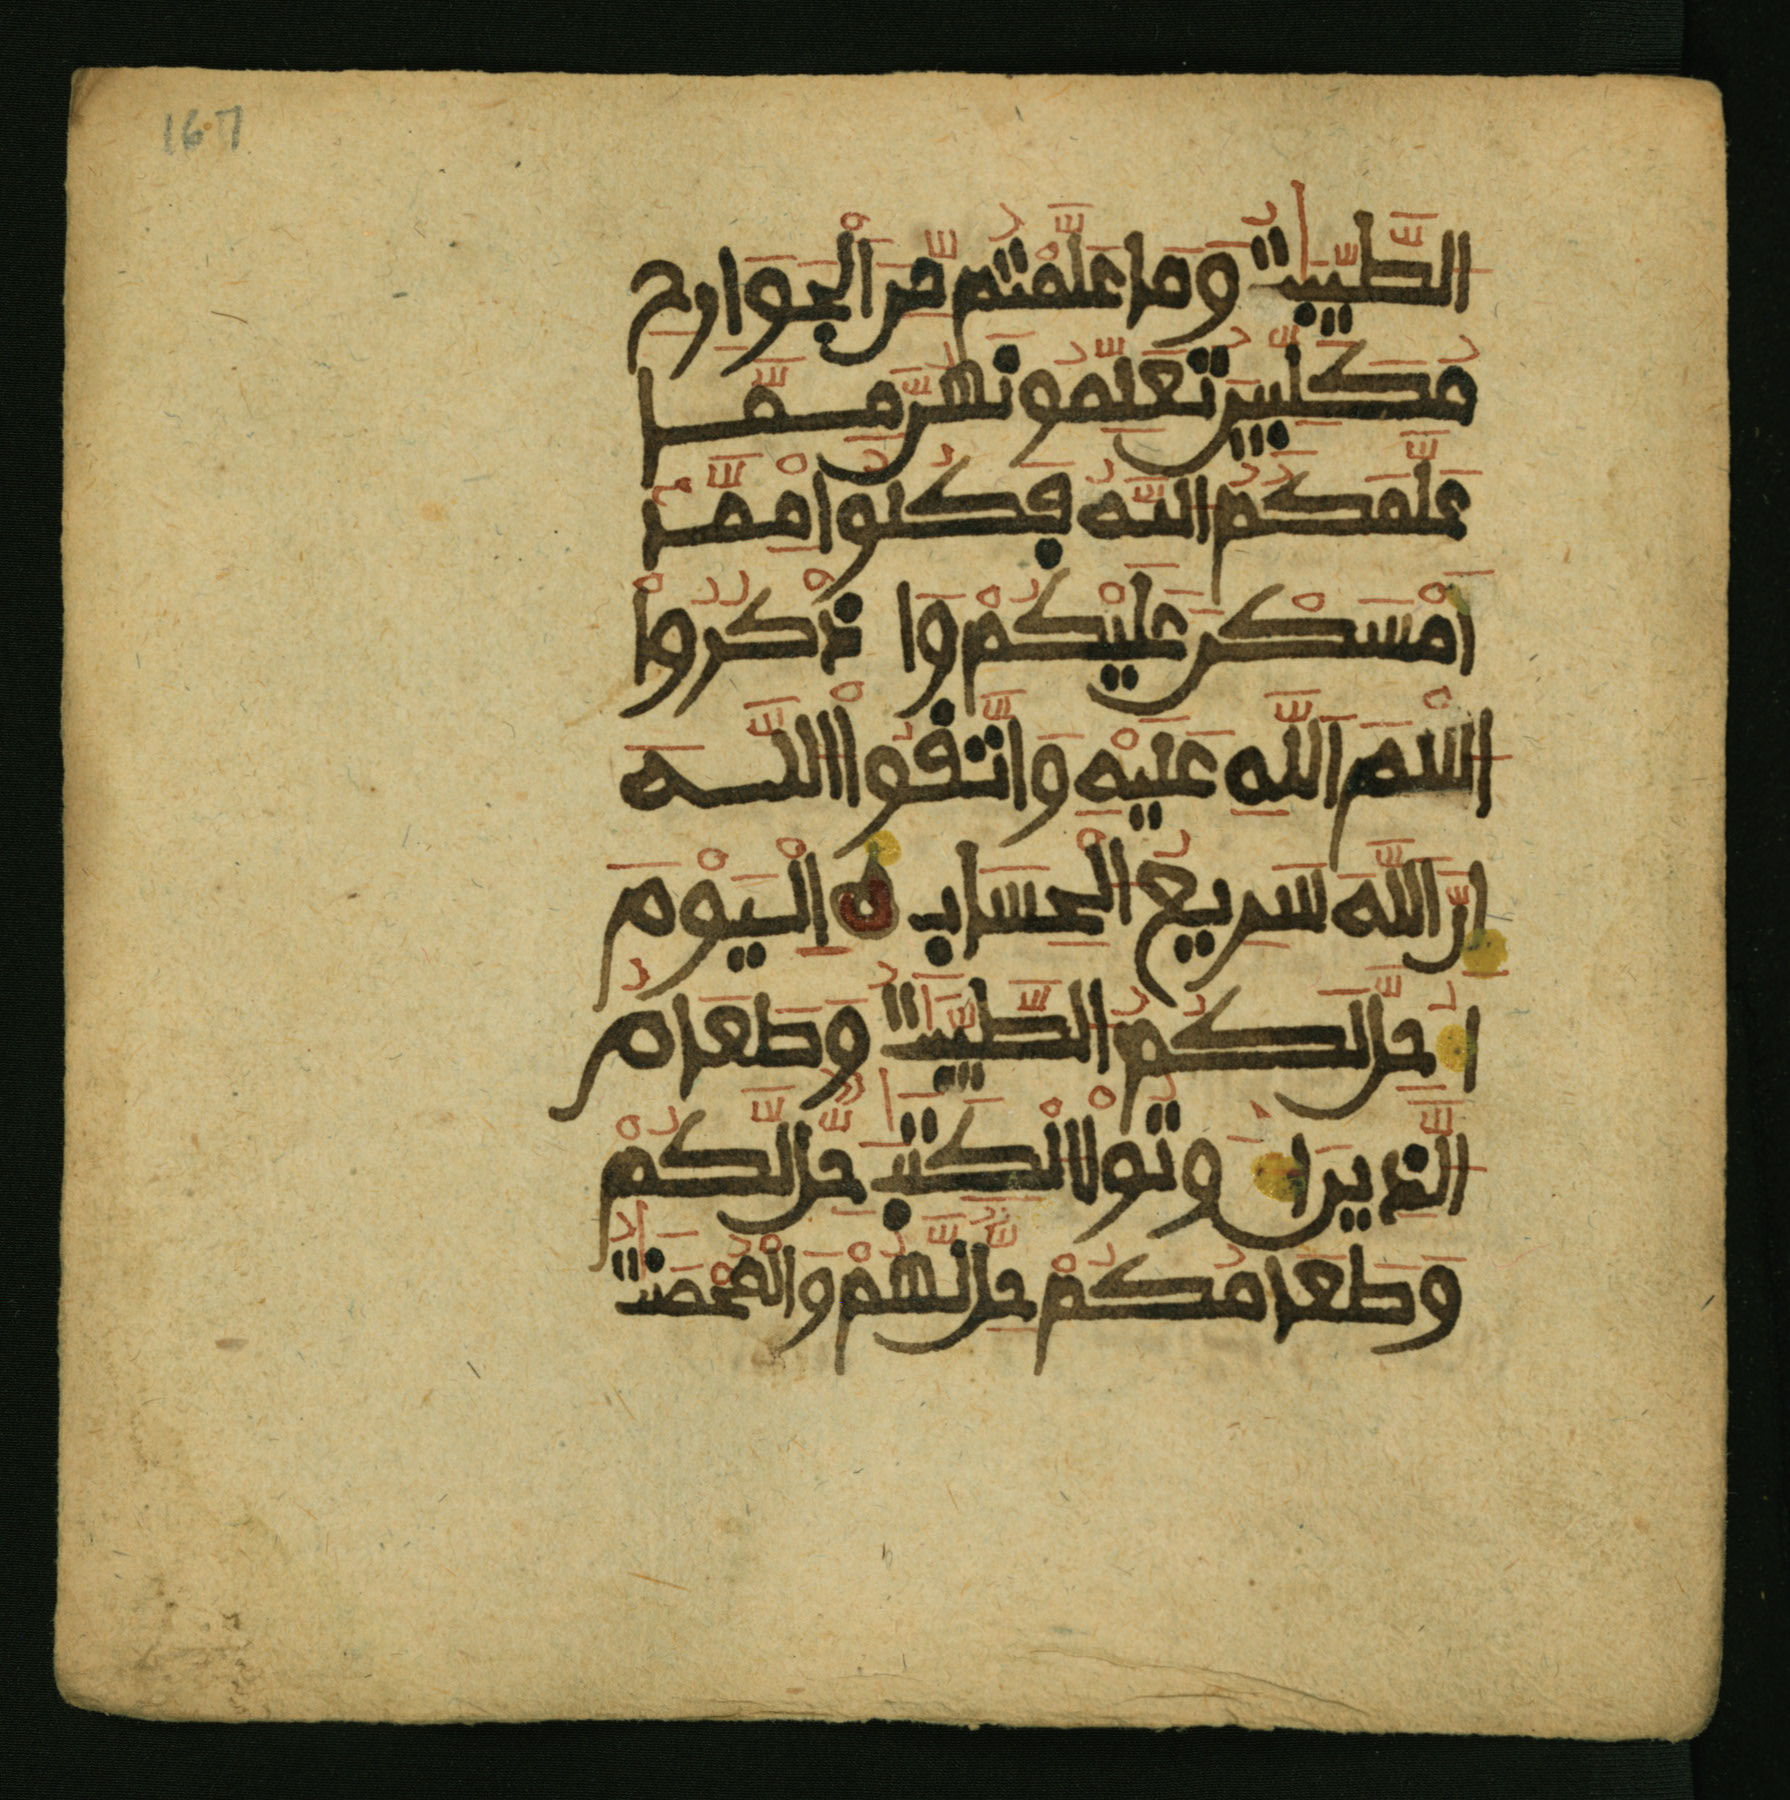 167
الطَّيِّبَٰتُ وَمَا عَلَّمْتُم مِّنَ ألْجَوَارِحِ
مُكَلِّبِينَ تُعَلِّمُونَهُنَّ مِمَّا
عَلَّمَكُمُ اللَّهُ فَكُلُوا مِمَّا
أَمْسَكْنَ عَلَيْكُمْ وَا ذْكُرُوا
اسْمَ اَللَّهِ عَلَيْهِ وَاتَّقُوا اللَّه
اِنَّ اَللَّهَ سَرِيعُ الْحِسَابِ اِلْيَوْمَ
اُحِلَّ لَكُمُ الطَّيِّبَٰتُ وَطَعَامُ
الَّذِينَ اُوتُوا الْكِتَٰبَ حِلٌّ لَّكُمْ
وَطَعَامُكُمْ حِلٌّ لَّهُمْ وَالْمُحْصَنَٰتُ